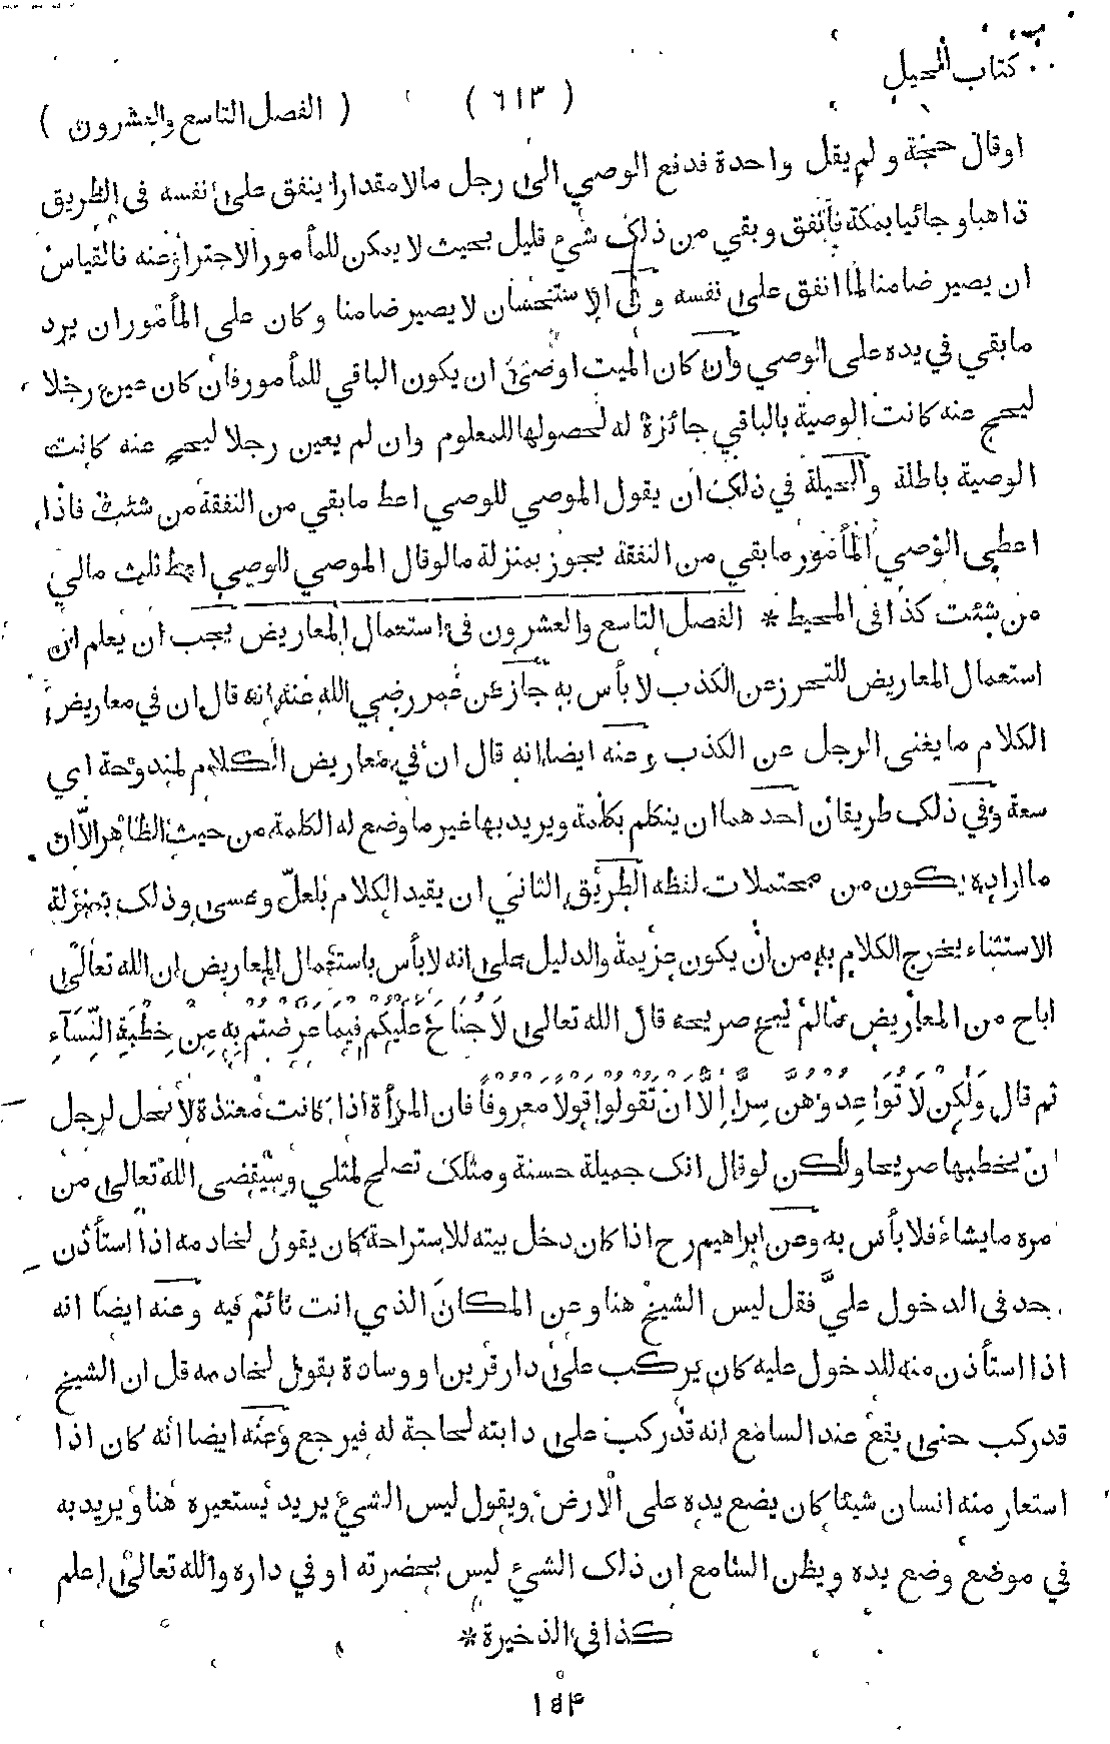 كتاب الحيل
( الفصل التاسع والعشرون ) ( ٦١٣ )
اوقال حجة و لم يقل واحدة فدفع الوصي الى رجل مالا مقدارا ينفق على نفسه فى الطريق
ذاهبا و جائيا بمكة فأنفق و بقي من ذلك شيء قليل بحيث لا يمكن للمأمور الاحتراز عنه فالقياس
ان يصير ضامنا لما انفق على نفسه و فى الاستحسان لا يصير ضامنا و كان على المأمور ان يرد
ما بقي في يده على الوصي وان كان الميت اوصى ان يكون الباقي للمأمور فان كان عين رجلا
ليحج عنه كانت الوصية بالباقي جائزة له لحصولها للمعلوم وان لم يعين رجلا ليحج عنه كانت
الوصية باطلة والحيلة في ذلك ان يقول الموصي للوصي اعط ما بقي من النفقة من شئت فاذا
اعطى الوصي المأمور ما بقي من النفقة يجوز بمنزلة ما لو قال الموصي للوصي اعط ثلث مالي
من شئت كذا فى المحيط * الفصل التاسع والعشرون فى استعمال المعاريض يجب ان يعلم ان
استعمال المعاريض للتحرز عن الكذب لا بأس به جاز عن عمر رضي الله عنه انه قال ان في معاريض
الكلام ما يغنى الرجل عن الكذب وعنه ايضا انه قال ان في معاريض الكلام لمندوحة اي
سعة وفي ذلك طريقان احدهما ان يتكلم بكلمة ويريد بها غير ما وضع له الكلمة من حيث الظاهر الا ان
ما اراده يكون من محتملات لفظه الطريق الثاني ان يقيد الكلام بلعل وعسى وذلك بمنزلة
الاستثناء يخرج الكلام به من أن يكون عزيمة والدليل على انه لا بأس باستعمال المعاريض ان الله تعالى
اباح من المعاريض مالم يبح صريحه قال الله تعالى لَا جُنَاحَ عَلَيْكُمْ فِيمَا عَرَّضْتُمْ بِهِ مِنْ خِطْبَةِ النِّسَآءِ
ثم قال وَلَكِنْ لَا تُوَاعِدُوهُنَّ سِرًّا إِلَّا أَنْ تَقُولُوا قَوْلًا مَعْرُوفًا فان المرأة اذا كانت معتدة لا تحل لرجل
ان يخطبها صريحا ولكن لو قال انك جميلة حسنة ومثلك تصلح لمثلي وسيقضى الله تعالى من
مره ما يشاء فلا بأس به وعن ابراهيم رح اذا كان دخل بيته للاستراحة كان يقول لخادمه اذا استأذن
حد فى الدخول عليّ فقل ليس الشيخ هنا وعن المكان الذي انت نائم فيه وعنه ايضا انه
اذا استأذن منه للدخول عليه كان يركب على دار قرين او وسادة يقول لخادمه قل ان الشيخ
قد ركب حتى يقع عند السامع انه قد ركب على دابته لحاجة له فيرجع وعنه ايضا انه كان اذا
استعار منه انسان شيئا كان يضع يده على الارض ويقول ليس الشيء يريد يستعيره هنا ويريد به
في موضع وضع يده ويظن السامع ان ذلك الشيء ليس بحضرته او في داره والله تعالى اعلم
كذا فى الذخيرة *
١٥۴